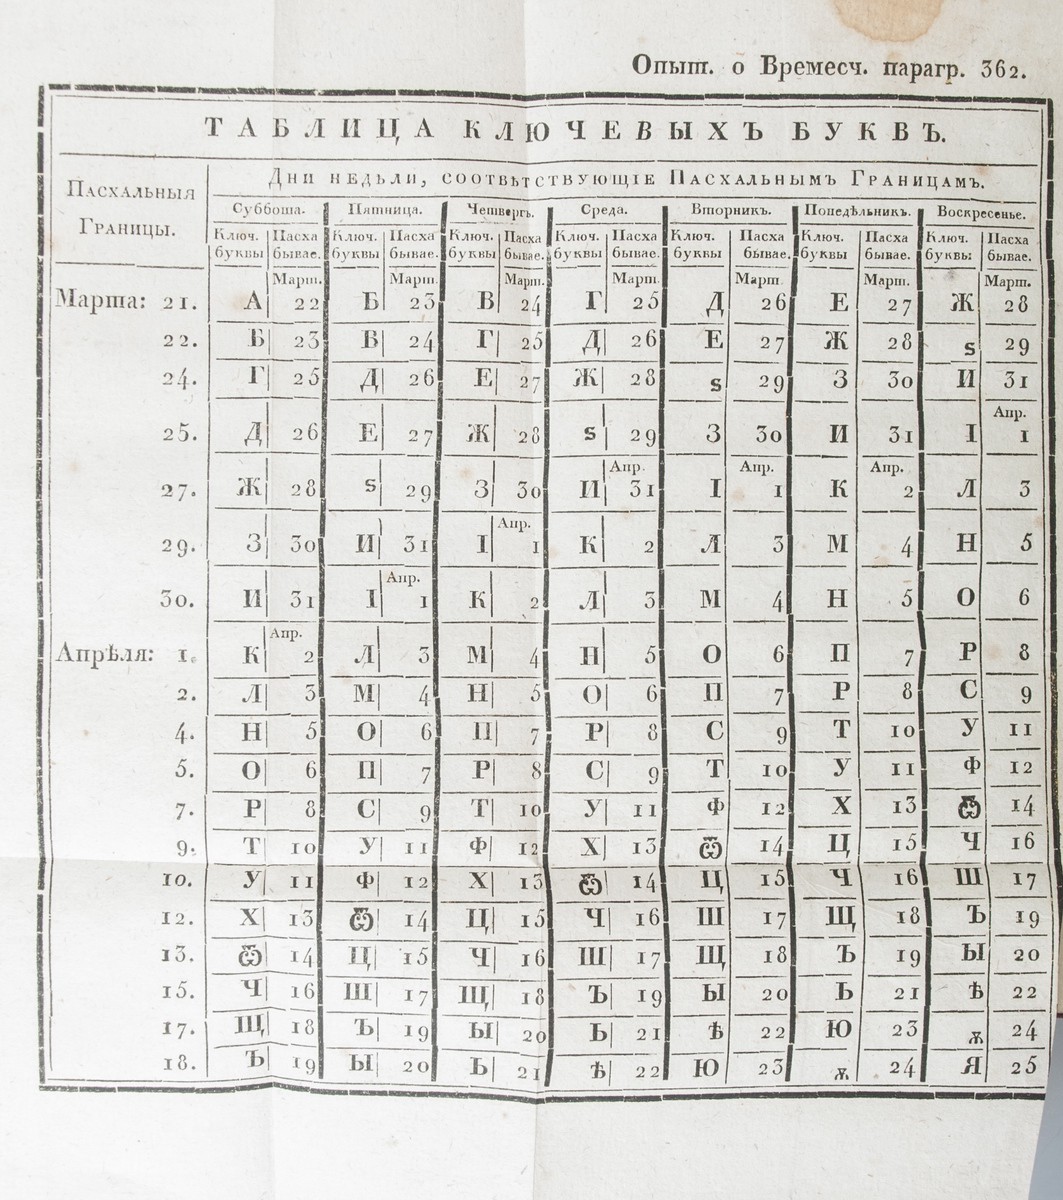 Опыт. о Времесч. парагр. 362.
ТАБЛИЦА КЛЮЧЕВЫХЪ БУКВЪ.
Пасхальныя Границы.
Дни недѣли, соотвѣтствующіе Пасхальнымъ Границамъ.
Суббота. Пятница. Четвергъ. Среда. Вторникъ. Понедѣльникъ. Воскресенье.
Ключ. Пасха Ключ. Пасха Ключ. Пасха Ключ. Пасха Ключ. Пасха Ключ. Пасха Ключ. Пасха
буквы бывае. буквы бывае. буквы бывае. буквы бывае. буквы бывае. буквы бывае. буквы бывае.
Март. Март. Март. Март. Март. Март. Март.
Марта: 21. А 22 Б 23 В 24 Г 25 Д 26 Е 27 Ж 28
22. Б 23 В 24 Г 25 Д 26 Е 27 Ж 28 ѕ 29
24. Г 25 Д 26 Е 27 Ж 28 ѕ 29 З 30 И 31
Апр.
25. Д 26 Е 27 Ж 28 ѕ 29 З 30 И 31 І 1
Апр. Апр. Апр.
27. Ж 28 ѕ 29 З 30 И 31 І 1 К 2 Л 3
Апр.
29. З 30 И 31 І 1 К 2 Л 3 М 4 Н 5
Апр.
30. И 31 І 1 К 2 Л 3 М 4 Н 5 О 6
Апр.
Апрѣля: 1. К 2 Л 3 М 4 Н 5 О 6 П 7 Р 8
2. Л 3 М 4 Н 5 О 6 П 7 Р 8 С 9
4. Н 5 О 6 П 7 Р 8 С 9 Т 10 У 11
5. О 6 П 7 Р 8 С 9 Т 10 У 11 Ф 12
7. Р 8 С 9 Т 10 У 11 Ф 12 Х 13 Ѿ 14
9. Т 10 У 11 Ф 12 Х 13 Ѿ 14 Ц 15 Ч 16
10. У 11 Ф 12 Х 13 Ѿ 14 Ц 15 Ч 16 Ш 17
12. Х 13 Ѿ 14 Ц 15 Ч 16 Ш 17 Щ 18 Ъ 19
13. Ѿ 14 Ц 15 Ч 16 Ш 17 Щ 18 Ъ 19 Ы 20
15. Ч 16 Ш 17 Щ 18 Ъ 19 Ы 20 Ь 21 Ѣ 22
17. Щ 18 Ъ 19 Ы 20 Ь 21 Ѣ 22 Ю 23 ѫ 24
18. Ъ 19 Ы 20 Ь 21 Ѣ 22 Ю 23 ѫ 24 Я 25